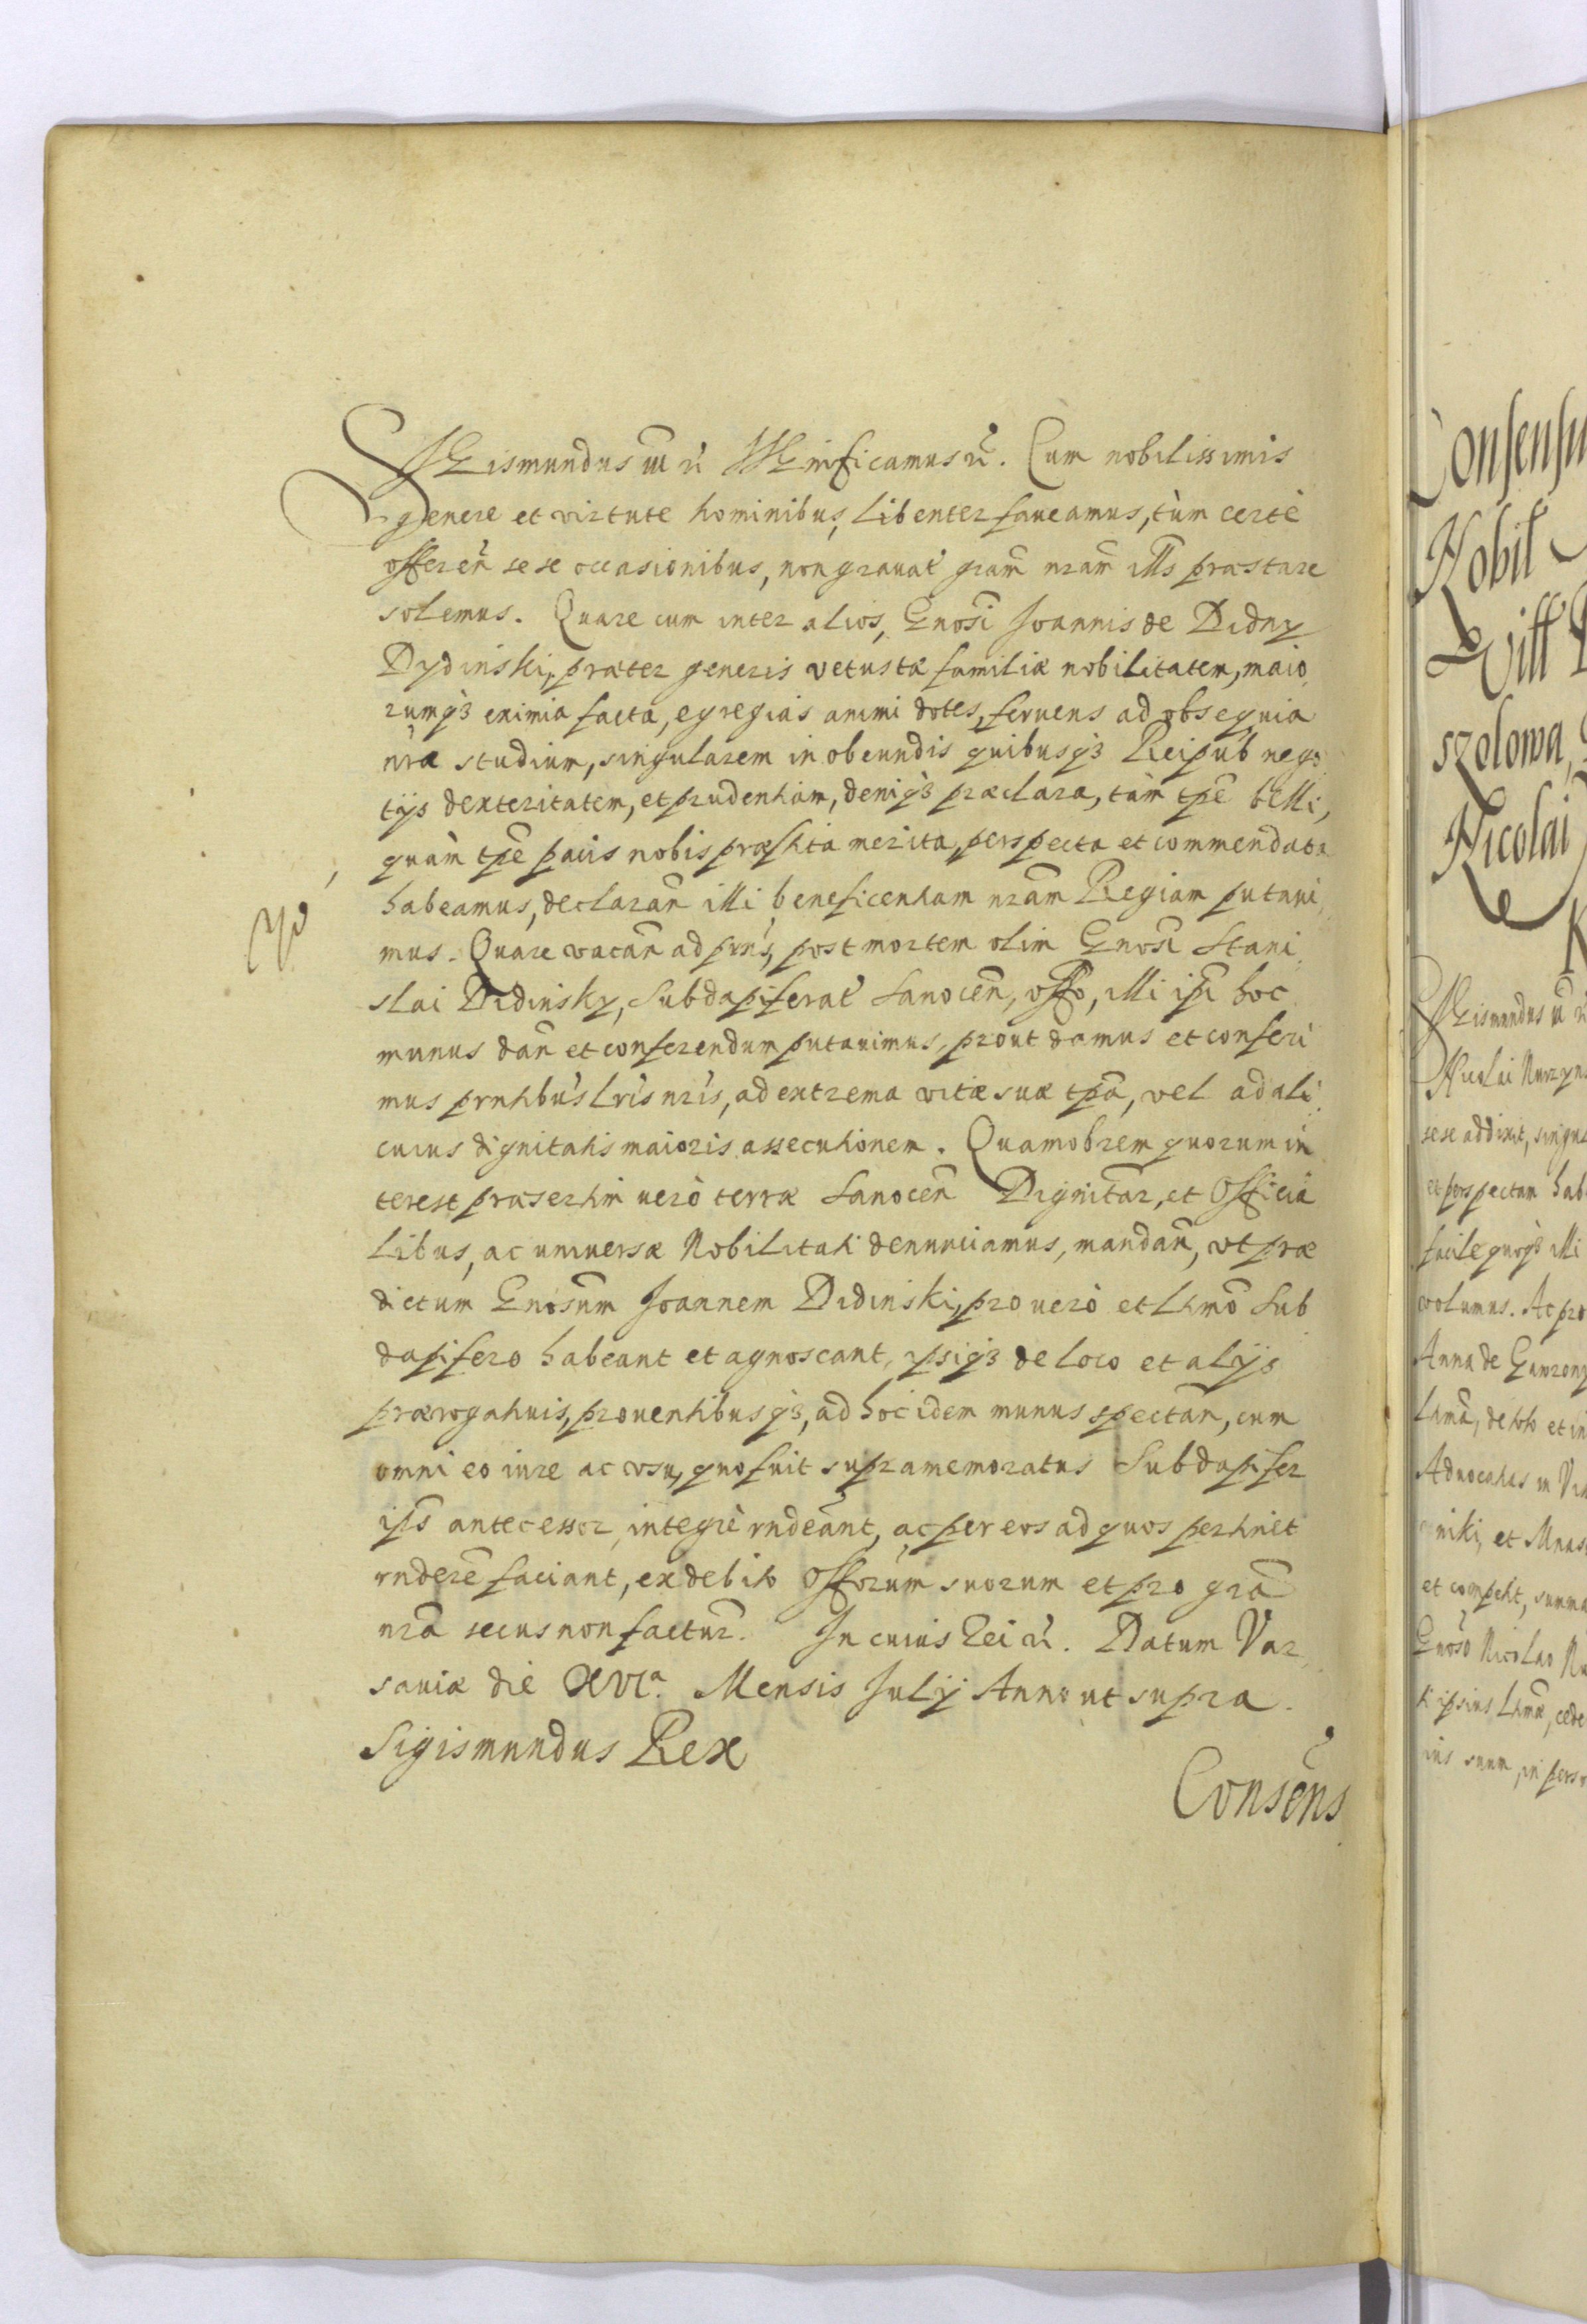 SIGismundus III etc. SIGnificamus etc. Cum nobilissimis
genere et virtute hominibus, libenter faueamus, tùm certè
offeren̄ sese occasionibus, non grauat̄ gram̄ nram̄ ill̄s præstare
solemus. Quare cum inter alios, Gnosi Joannis de Didny
Dydinski, præter generis vetustæ familiæ nobilitatem, maio,
rumq3 eximia facta, egregias animi dotes, feruens ad obsequia
nrā studium, singularem in obeundis quibusq3 Reipub nego
tijs dexteritatem, et prudentiam, deniq3 præclara, tàm tp̄e belli,
quàm tp̄e pacis nobis præstita merita, perspecta et commendata
habeamus, declaran̄ illi beneficentiam nram̄ Regiam putaui,
mus. Quare vacan̄ ad prn̄s, post mortem olim Gnosi Stani,
slai Didinsky, Subdapiferat̄ Sanocen̄, offo, illi ip̄i hoc
munus dan̄ et conferendum putauimus, prout damus et conferi
mus prn̄tibus l̄ris nr̄is, ad extrema vitæ suæ tp̄a, vel ad ali
cuius dignitatis maioris assecutionem. Quamobrem quorum in
terest præsertim uerò terræ Sanocen̄ Dignitar̄, et Officia
libus, ac uniuersæ Nobilitati denunciamus, mandan̄, vt præ
dictum Gnosum̄ Joannem Didinski, pro uero et lt̄imo Sub
dapifero habeant et agnoscant, ipsiq3 de loco et alijs
prærogatiuis, prouentibusq3, ad hoc idem munus spectan̄, cum
omni eo iure ac vsu, quo fuit supramemoratus Subdapifer
ip̄s antecessor, integrè rndeānt, ac per eos ad quos pertinet
rnderē faciant, ex debito Offorum̄ suorum et pro gr̄a
nr̄a secus non factur̄. In cuius Rei etc. Datum Var,
sauiæ die XVIa. Mensis Julij Anno ut supra.
Sigismundus Rex
Consēns
Consensu
Nobil
Vill
szolowa,
Nicolai
SIGismundus III
Nicolai
sese addixit, singul
et perspectam hab
facile quoq3 illi
volumus. Ac pro
Anna de
lt̄imā, de toto et in
Aduocatus in
niki, et
et competit, summa
Gnoso Nicolao
ti ipsius lt̄imā, cede
ius suum, in perso